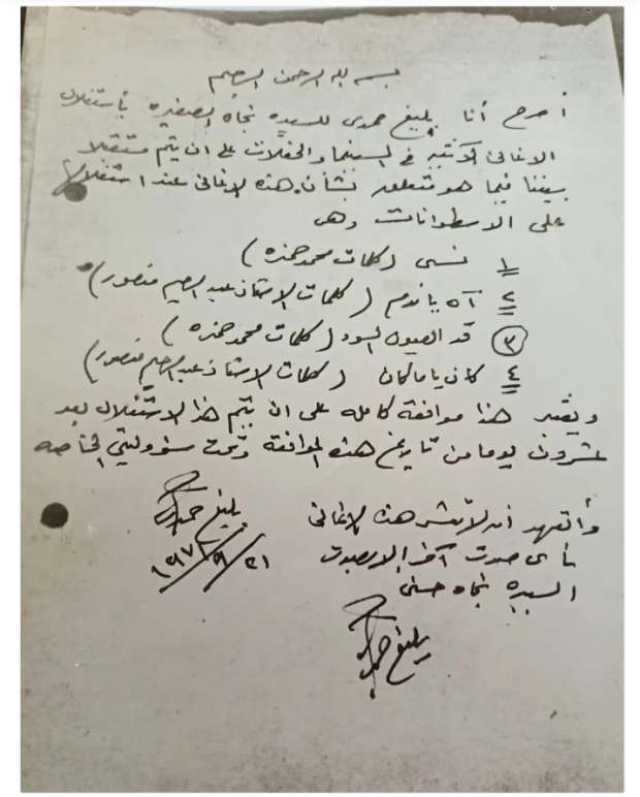 بسم الله الرحمن الرحيم
أصرح أنا بليغ حمدى للسيده نجاة الصغيره بأستغلال
الاغانى الآتيه فى السينما والحفلات على ان يتم
بيننا فيما هو متعلق بشأن هذه الاغانى عند استغلالها
على الاسطوانات وهى
١ نسى (كلمات محمد حمزه)
٢ آه يا ندم (كلمات الاستاذ عبد الرحيم منصور)
٣ قد العيون السود (كلمات محمد حمزه)
٤ كان ياما كان (كلمات الاستاذ عبد الرحيم منصور)
ويعتبر هذا موافقة كامله على ان يتم هذا الاستغلال بعد
عشرون يوما من تاريخ هذه الموافقة وتحت مسؤوليتي الخاصه
وأتعهد أن لا تنشر هذه الاغانى
بأى صوت آخر إلا بصوت
السيده نجاه حسنى
بليغ حمدى
بليغ حمدى